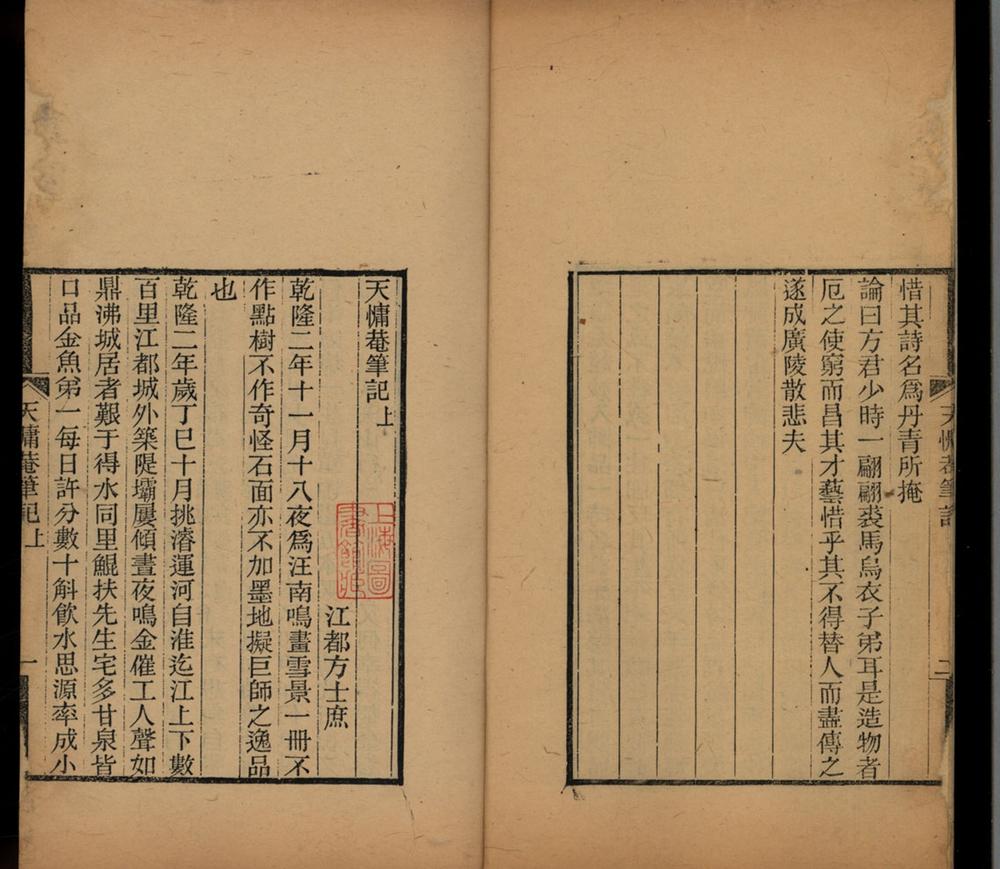 惜其詩名爲丹青所掩
論曰方君少時一翩翩裘馬烏衣子弟耳是造物者
厄之使窮而昌其才藝惜乎其不得替人而盡傳之
遂成廣陵散悲夫
天慵菴筆記
二
天慵菴筆記上
江都方士庶
上海圖書館藏
乾隆二年十一月十八夜爲汪南鳴畫雪景一冊不
作點樹不作奇怪石面亦不加墨地擬巨師之逸品
也
乾隆二年歲丁巳十月挑濬運河自淮迄江上下數
百里江都城外築隄壩屢傾晝夜鳴金催工人聲如
鼎沸城居者艱于得水同里鯤扶先生宅多甘泉皆
口品金魚弟一每日許分數十斛飲水思源率成小
天慵菴筆記上
一